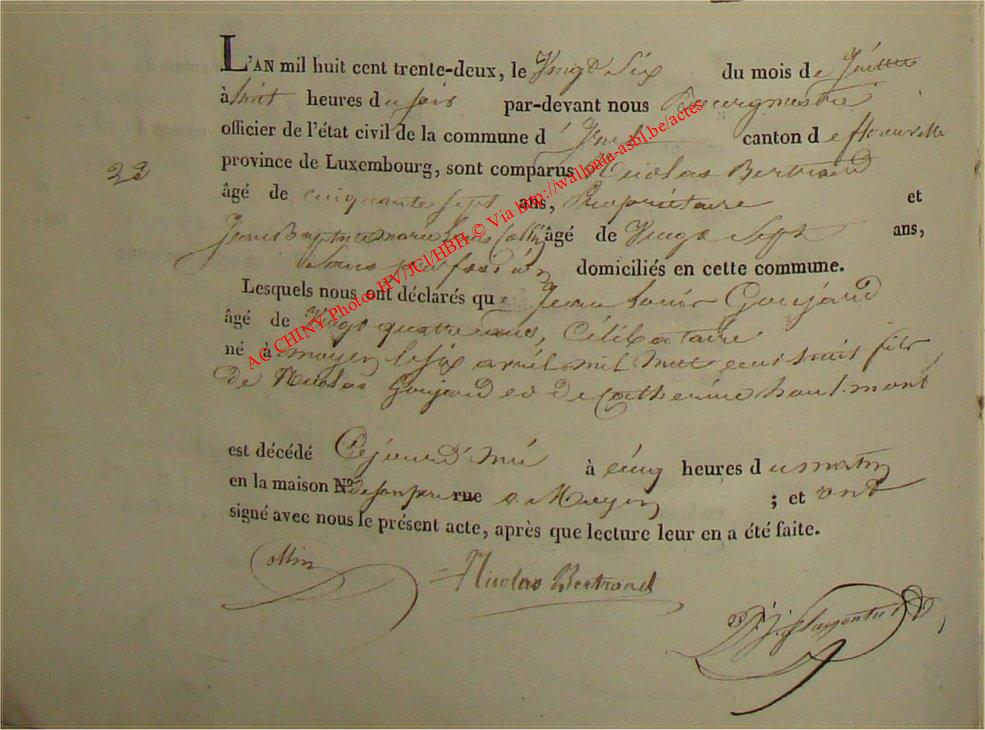 L'AN mil huit cent trente-deux, le Vingt Six du mois de Juillet
à huit heures du soir par-devant nous Bourgmestre
officier de l'état civil de la commune d' canton de florenville
22
province de Luxembourg, sont comparus Nicolas Bertrand
âgé de cinquante sept ans, Propriétaire et
Jean Baptiste marie Louis Collin âgé de Vingt Sept ans,
Sans profession domiciliés en cette commune.
Lesquels nous ont déclarés que Jean Louis Goujard
âgé de Vingt quatre ans, Célibataire
né à moyen le six avril mil huit cent huit fils
de Nicolas Goujard et de Catherine hautmont
est décédé Cejourd'hui à cinq heures du matin
en la maison No de son père rue a Moyen ; et ont
signé avec nous le présent acte, après que lecture leur en a été faite.
Collin Nicolas Bertrand
AC CHINY Photos HV/JCl/HBH © Via http://wallonia-asbl.be/actes